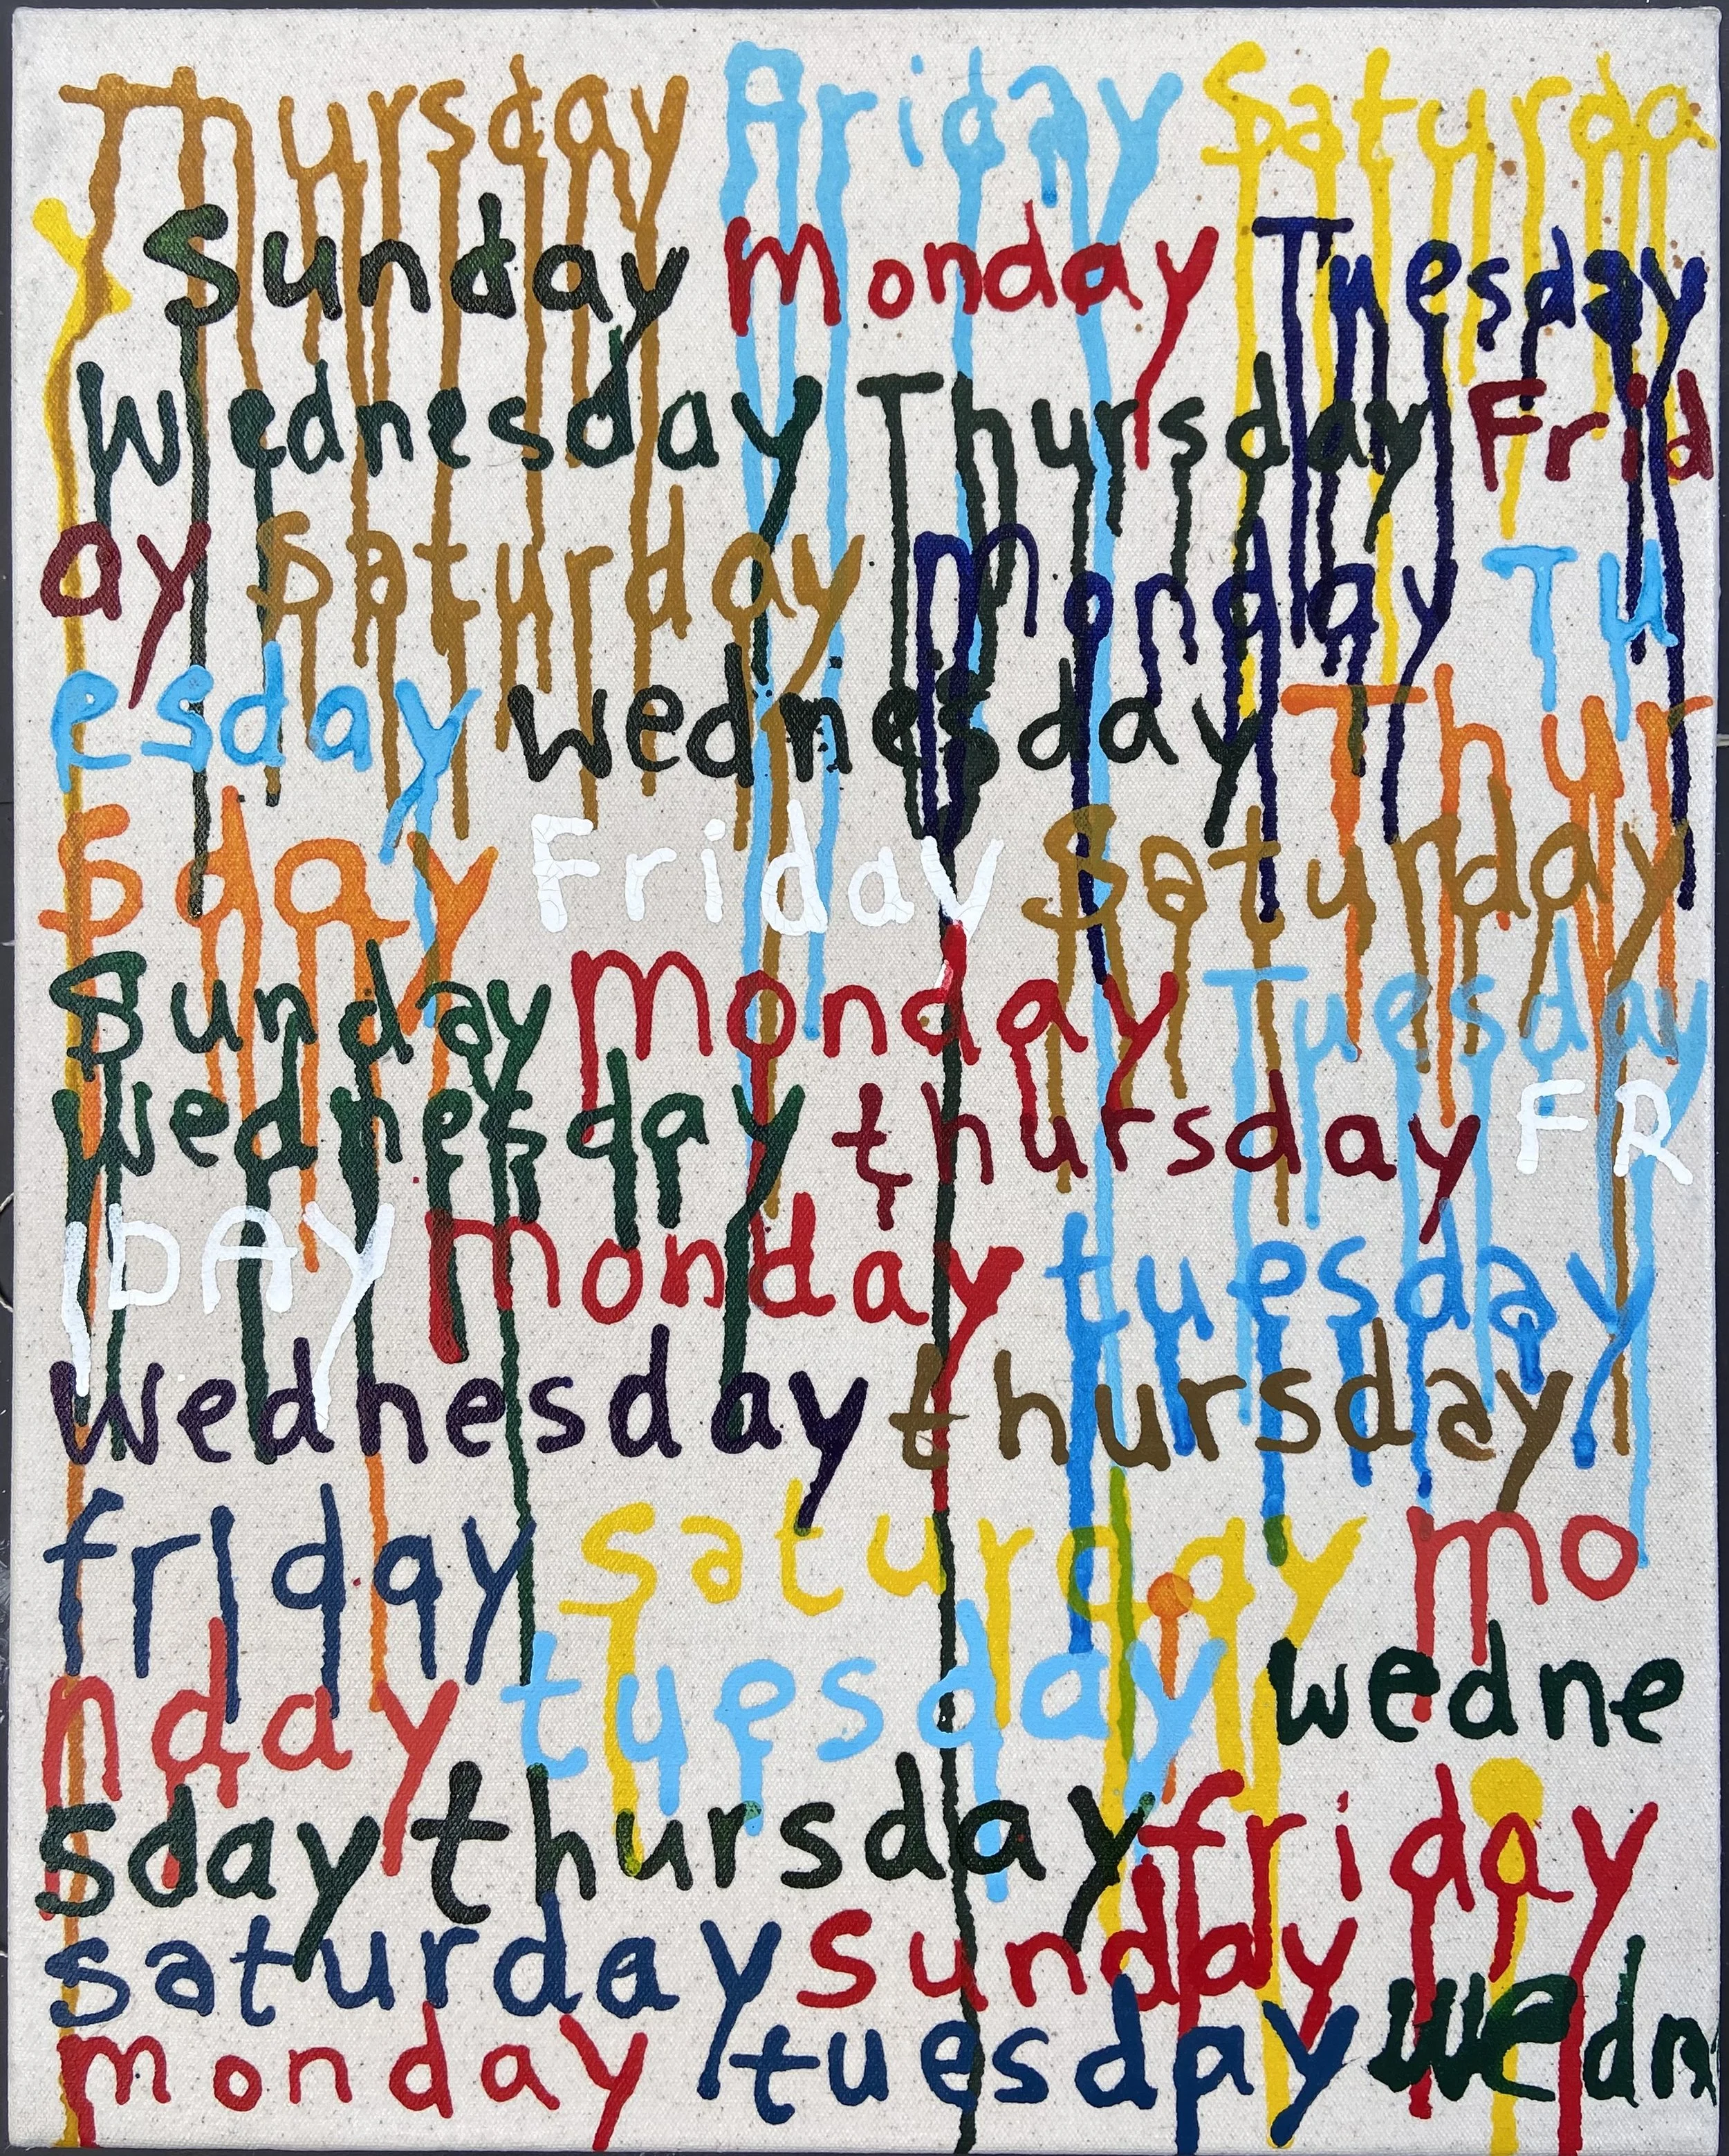 Thursday Friday Saturda
y Sunday Monday Tuesday
Wednesday Thursday Frid
ay Saturday Monday Tu
esday wednesday Thur
sday Friday Saturday
Sunday Monday Tuesday
wednesday thursday FR
IDAY monday tuesday
wednesday thursday
friday saturday mo
nday tuesday wedne
sday thursday friday
saturday sunday
monday tuesday wedn